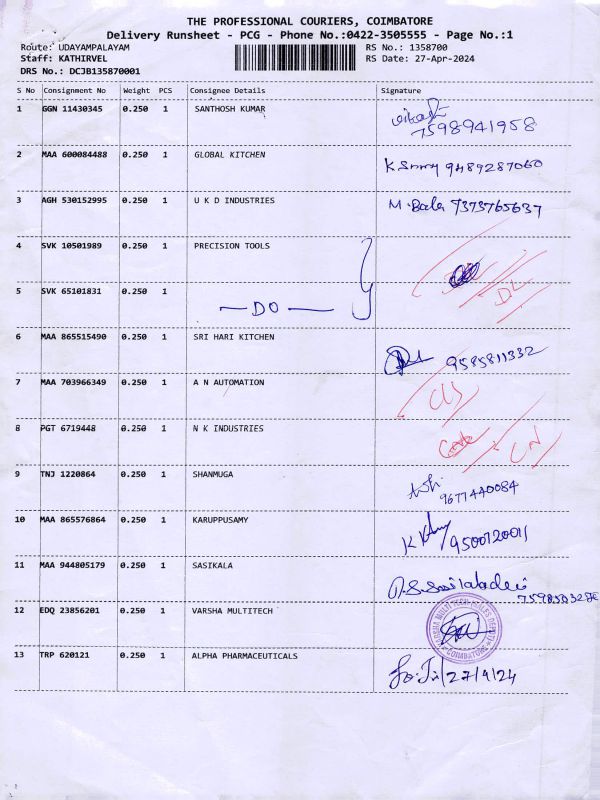 THE PROFESSIONAL COURIERS, COIMBATORE
Delivery Runsheet - PCG - Phone No.:0422-3505555 - Page No.:1
Route: UDAYAMPALAYAM RS No.: 1358700
Staff: KATHIRVEL RS Date: 27-Apr-2024
DRS No.: DCJB135870001
S No Consignment No Weight PCS Consignee Details Signature
1 GGN 11430345 0.250 1 SANTHOSH KUMAR
7598941958
2 MAA 600084488 0.250 1 GLOBAL KITCHEN 9489287060
3 AGH 530152995 0.250 1 U K D INDUSTRIES M. Bala 7373765637
4 SVK 10501989 0.250 1 PRECISION TOOLS
DL
5 SVK 65101831 0.250 1
— DO —
6 MAA 865515490 0.250 1 SRI HARI KITCHEN 9585811332
7 MAA 703966349 0.250 1 A N AUTOMATION
8 PGT 6719448 0.250 1 N K INDUSTRIES
9 TNJ 1220864 0.250 1 SHANMUGA
9677440084
10 MAA 865576864 0.250 1 KARUPPUSAMY
9500720011
11 MAA 944805179 0.250 1 SASIKALA
12 EDQ 23856201 0.250 1 VARSHA MULTITECH
COIMBATORE
13 TRP 620121 0.250 1 ALPHA PHARMACEUTICALS 27/4/24